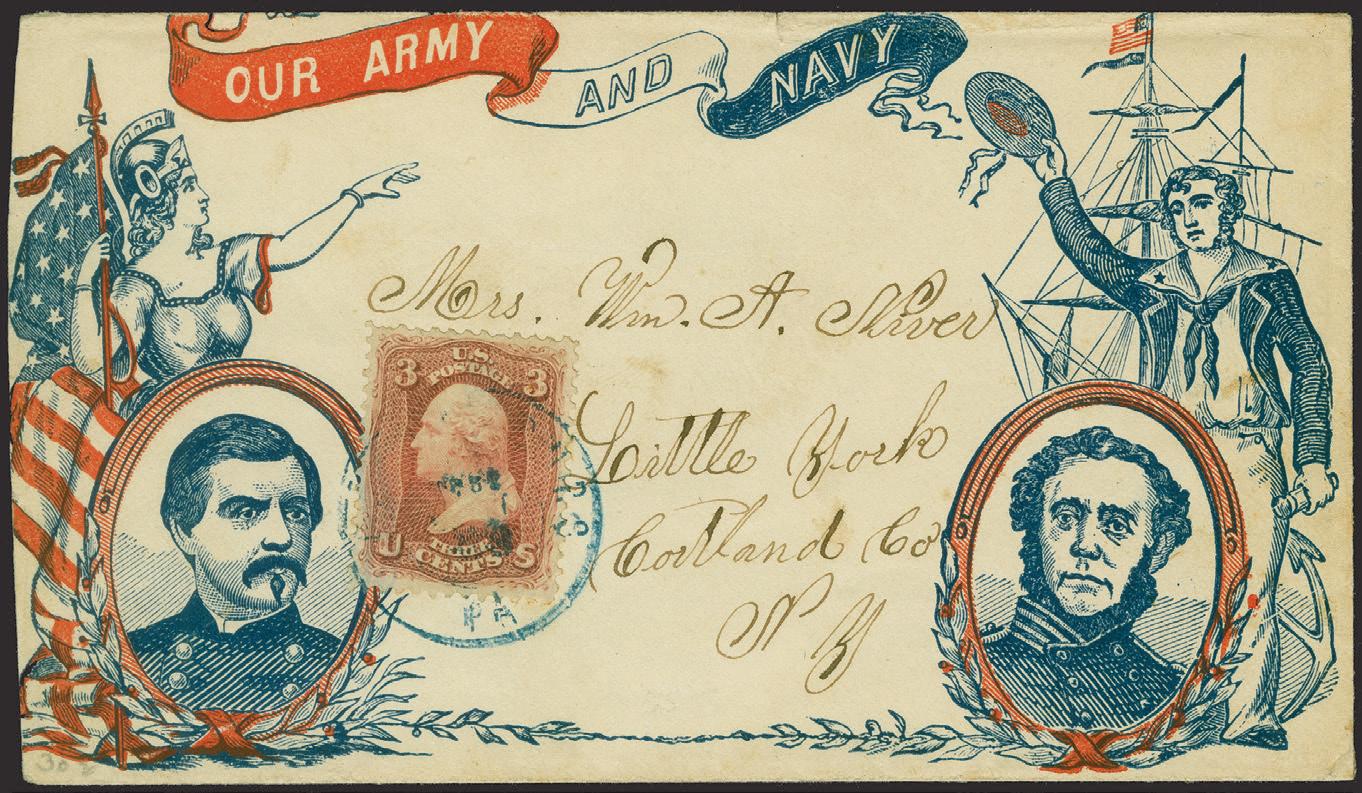 OUR ARMY AND NAVY
Mrs. Wm. A. Niver
Little York
Cortland Co
N Y
3 U.S. POSTAGE 3
U THREE S
CENTS
PA
30